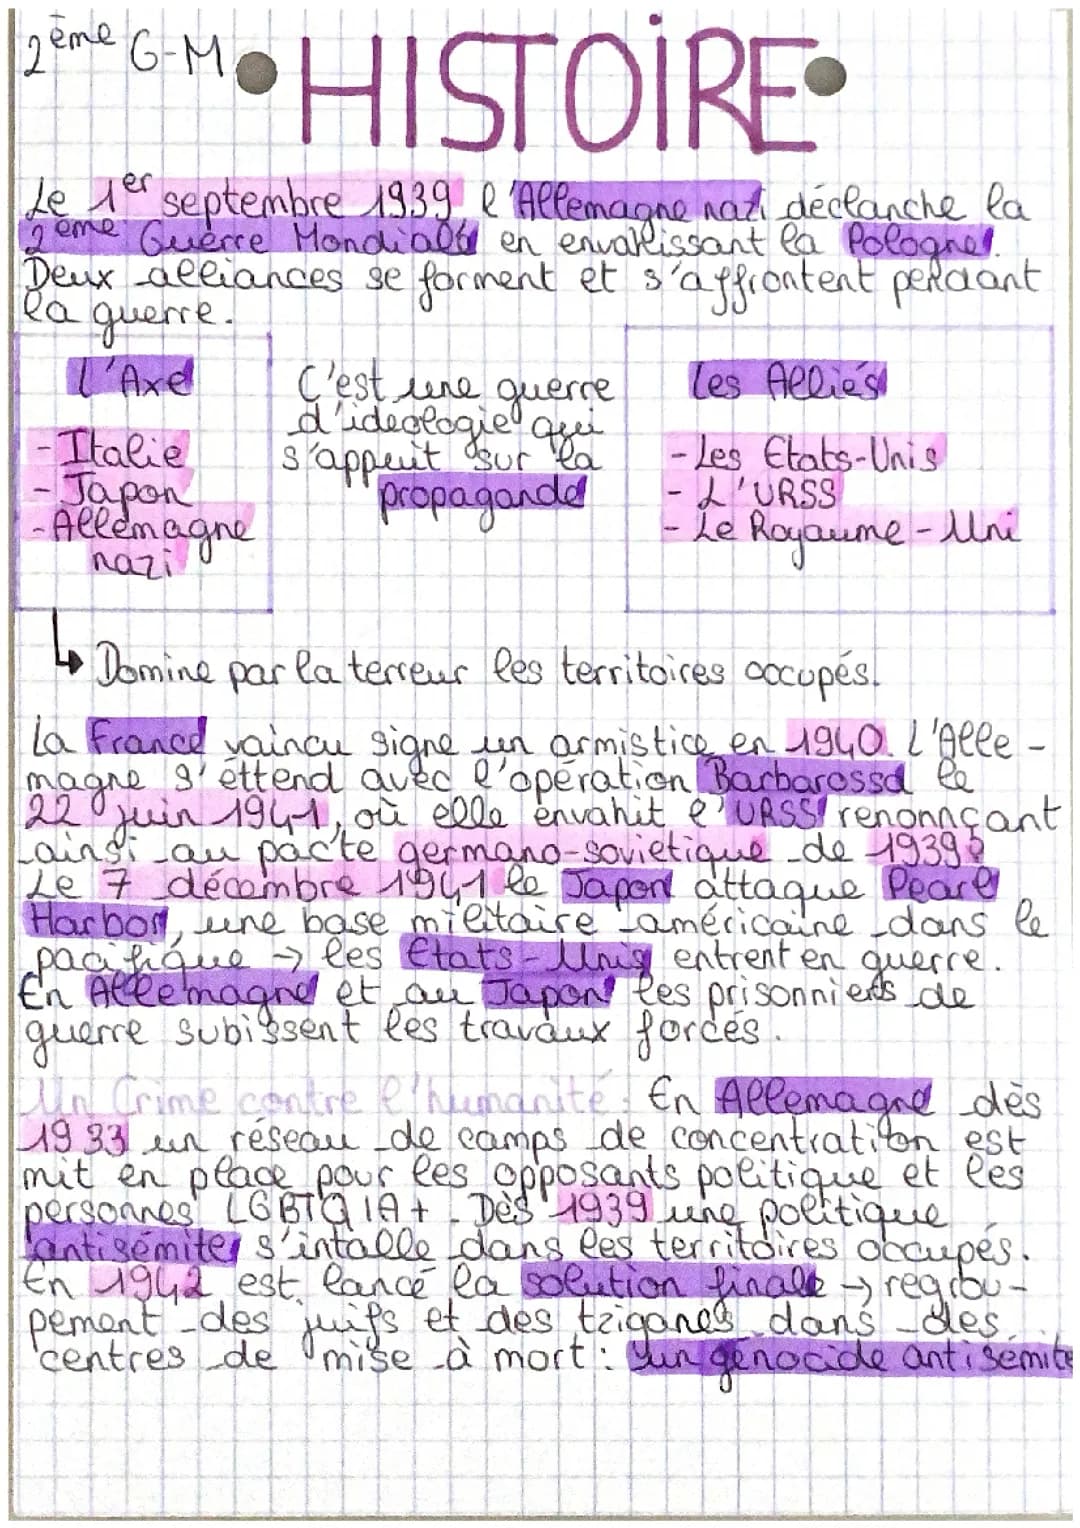 2ème G-M HISTOIRE
Le 1er septembre 1939 l'Allemagne nazi déclanche la
2ème Guerre Mondiale en envahissant la Pologne.
Deux alliances se forment et s'affrontent pendant
la guerre.
l'Axe
- Italie
- Japon
- Allemagne
nazi
C'est une guerre
d'ideologie qui
s'appuit sur la
propagande
Les Alliés
- Les Etats-Unis
- L'URSS
- Le Royaume-Uni
↳ Domine par la terreur les territoires occupés.
La France vaincu signe un armistice en 1940. L'Alle-
magne s'éttend avec l'opération Barbarossa le
22 juin 1941, où elle envahit l'URSS renonnçant
ainsi au pacte germano-sovietique de 1939.
Le 7 décembre 1941 le Japon attaque Pearl
Harbor, une base militaire américaine dans le
pacifique → les Etats-Unis entrent en guerre.
En Allemagne et au Japon les prisonniers de
guerre subissent les travaux forcés.
Un Crime contre l'humanité: En Allemagne dès
1933 un réseau de camps de concentration est
mit en place pour les opposants politique et les
personnes LGBTQIA+. Dès 1939 une politique
antisémite s'intalle dans les territoires occupés.
En 1942 est lancé la solution finale → regrou-
pement des juifs et des tziganes dans des
centres de mise à mort: un génocide antisémite